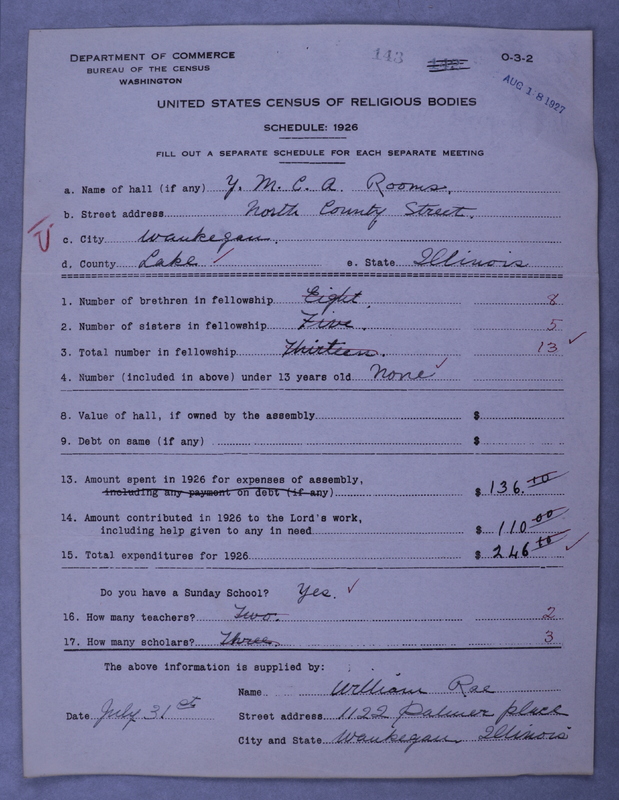 DEPARTMENT OF COMMERCE
BUREAU OF THE CENSUS
WASHINGTON
143
O-3-2
AUG 18 1927
UNITED STATES CENSUS OF RELIGIOUS BODIES
SCHEDULE: 1926
FILL OUT A SEPARATE SCHEDULE FOR EACH SEPARATE MEETING
a. Name of hall (if any) Y. M. C. A. Rooms.
b. Street address North County Street.
c. City Waukegan.
d. County Lake ✓ e. State Illinois
1. Number of brethren in fellowship Eight. 8
2. Number of sisters in fellowship Five. 5
3. Total number in fellowship Thirteen. 13 ✓
4. Number (included in above) under 13 years old None ✓
8. Value of hall, if owned by the assembly $
9. Debt on same (if any) $
13. Amount spent in 1926 for expenses of assembly,
including any payment on debt (if any) $ 136.10
14. Amount contributed in 1926 to the Lord's work,
including help given to any in need $ 110 00
15. Total expenditures for 1926 $ 246 10 ✓
Do you have a Sunday School? Yes. ✓
16. How many teachers? Two. 2
17. How many scholars? Three. 3
The above information is supplied by:
Name William Rae
Date July 31st Street address 1122 Palmer place
City and State Waukegan Illinois